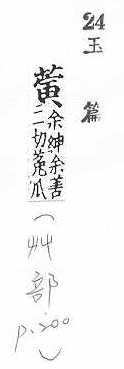 24 玉篇
黃
余紳余善
二切菟瓜
(艸部 p.200)